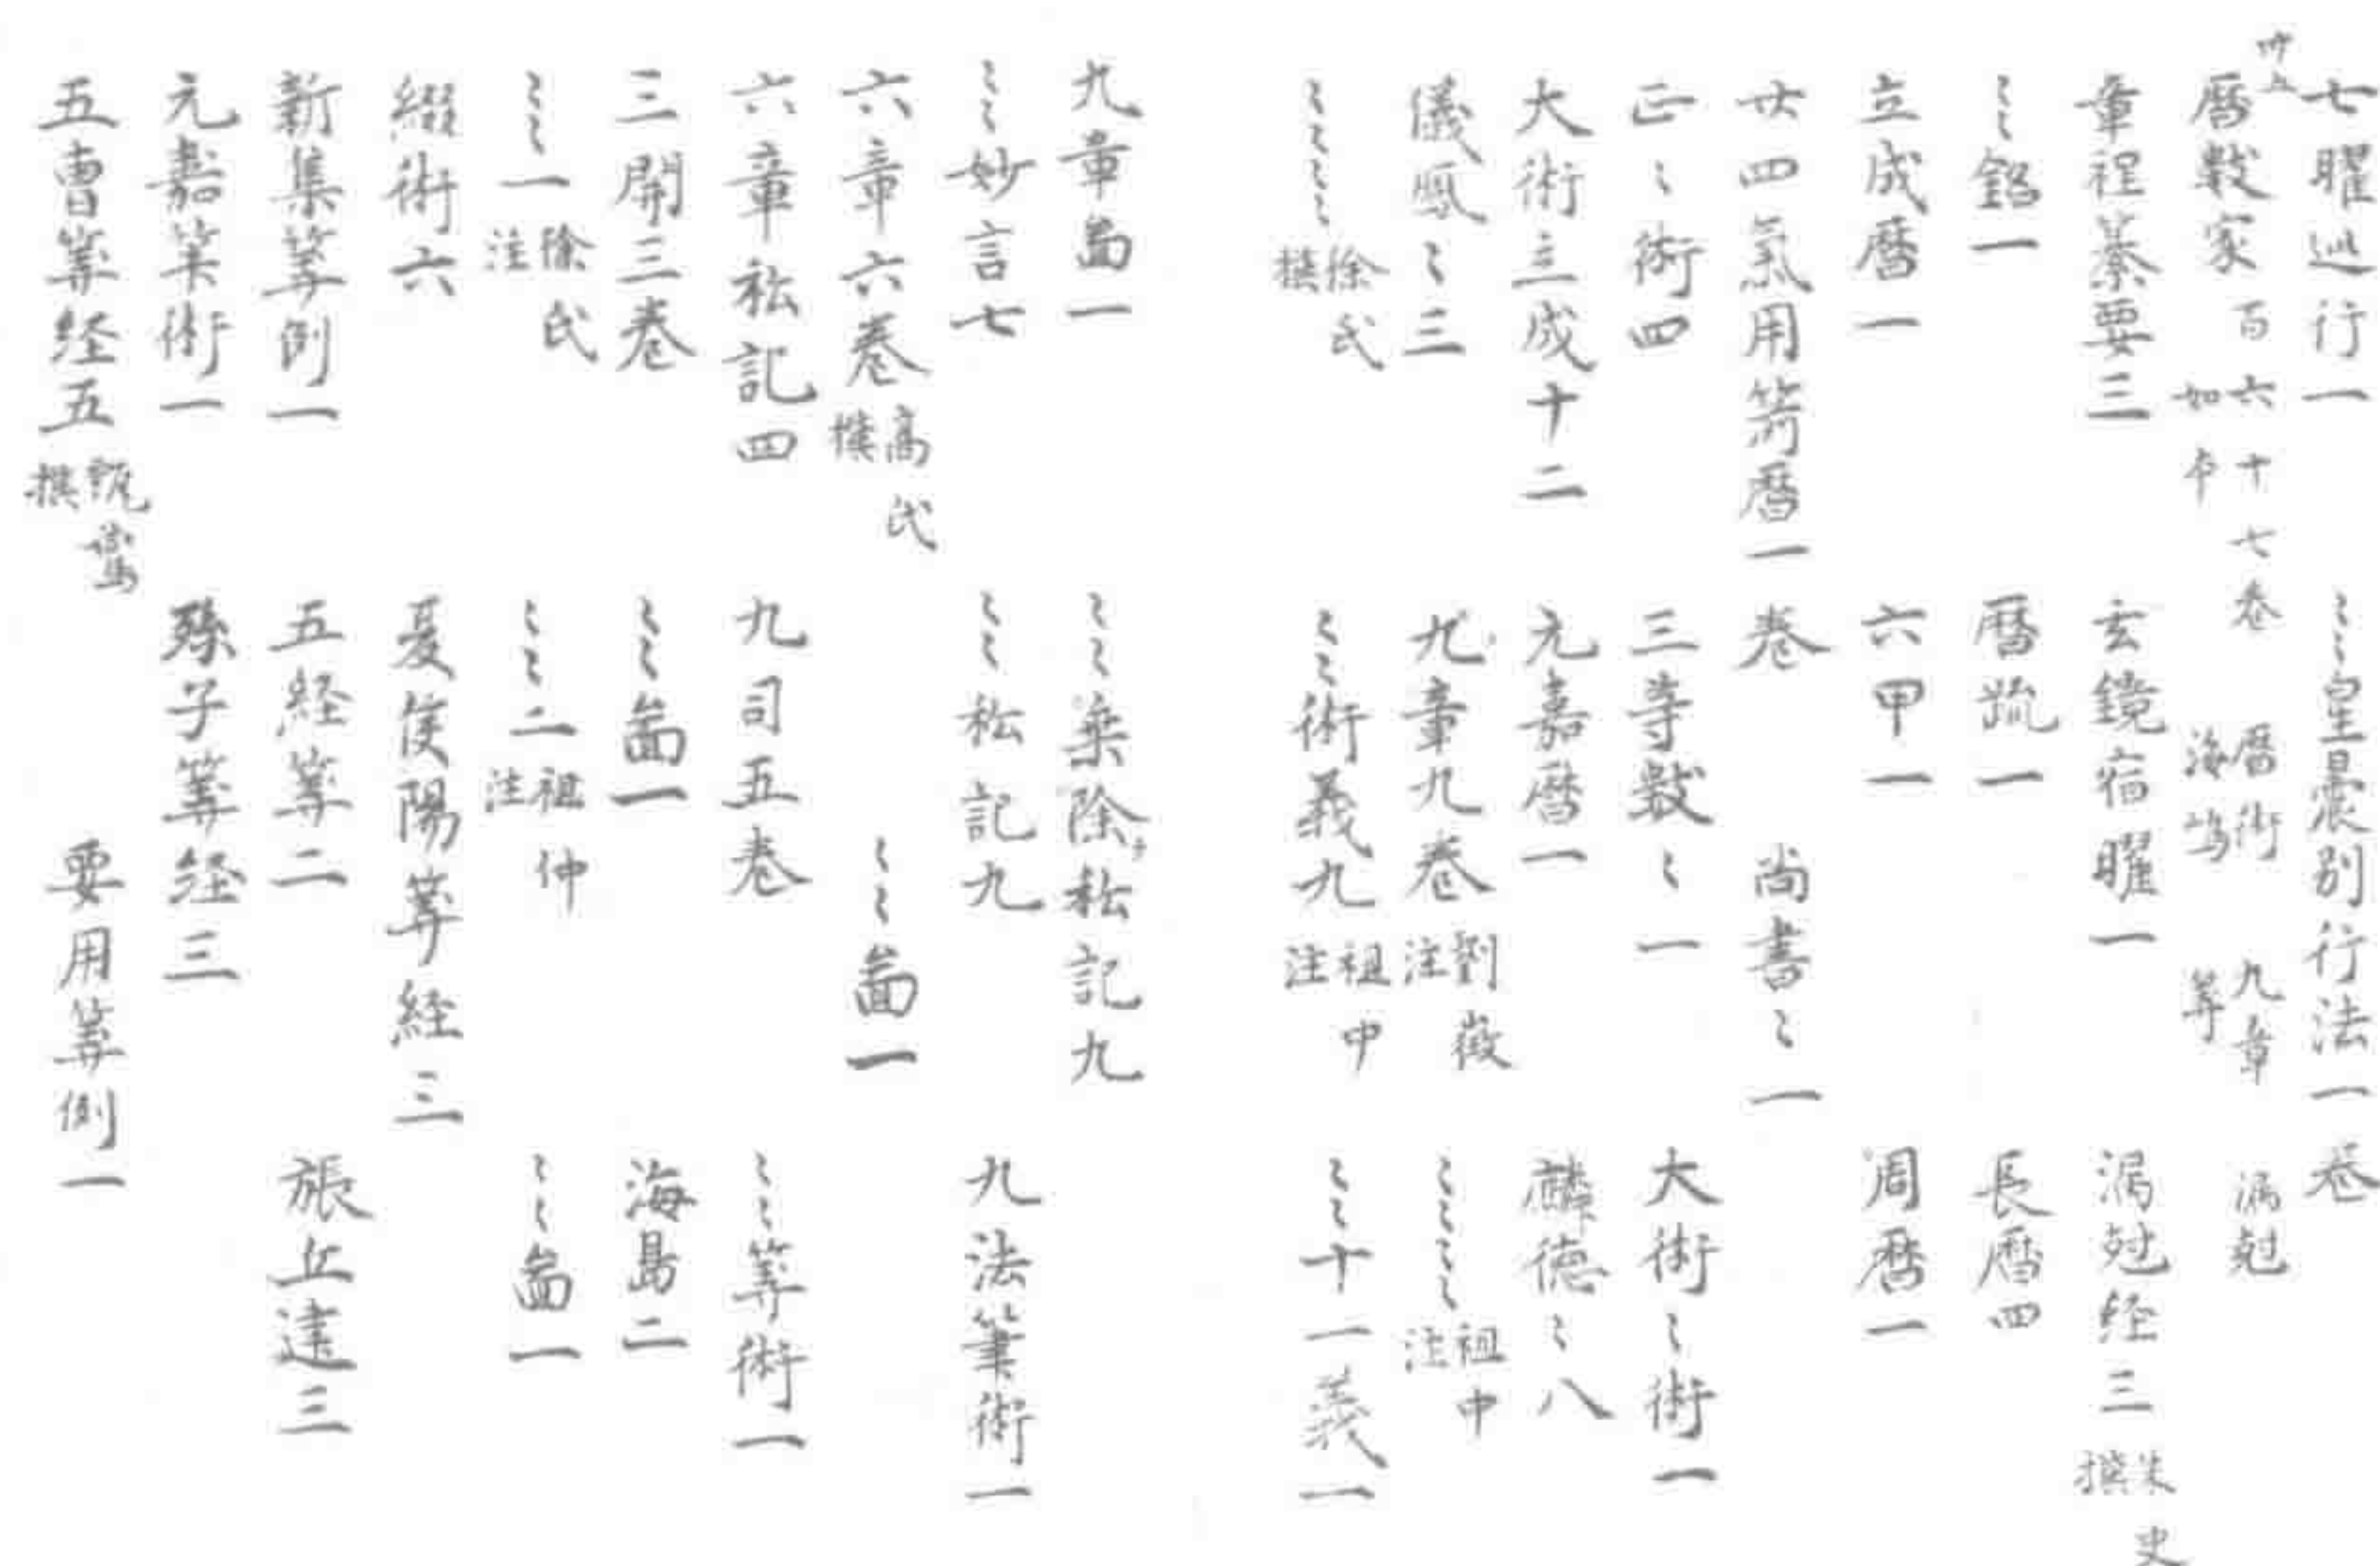 七曜巡行一 〻〻皇震別行法一卷
卅五 暦數家 百六十七卷 如本 暦術 海嶋 九章 筭 漏剋
章程纂要三 玄鏡宿曜一 漏剋経三 朱史撰
〻〻鈔一 暦疏一 長暦四
立成暦一 六甲一 周暦一
廿四氣用箭暦一卷 尚書〻一
正〻術四 三等數〻一 大術〻術一
大術立成十二 元嘉暦一 麟德〻八
儀鳳〻三 九章九卷 劉徽注 〻〻〻〻 祖中注
〻〻〻〻 徐氏撰 〻〻術義九 祖中注 〻〻十一義一
九章啚一 〻〻乘除私記九
〻〻妙言七 〻〻私記九 九法筭術一
六章六卷 髙氏撰 〻〻啚一
六章私記四 九司五卷 〻〻筭術一
三開三卷 〻〻啚一 海島二
〻〻一 徐氏注 〻〻二 祖仲注 〻〻啚一
綴術六 夏侯陽筭経三
新集筭例一 五経筭二 張丘建三
元嘉筭術一 孫子筭経三
五曹筭経五 甄鸞撰 要用筭例一